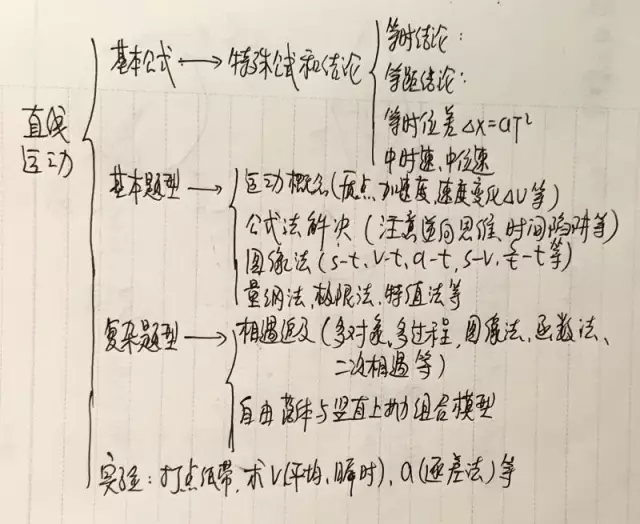 直线
运动
基本公式 ⟷ 特殊公式和结论
等时结论：
等距结论：
等时位差 Δx=aT²
中时速、中位速
基本题型 ⟶ 运动概念(质点、加速度、速度变化ΔU等)
公式法解决 (注意逆向思维、时间陷阱等)
图像法 (s-t, v-t, a-t, s-v, s/t-t等)
量纲法、极限法、特值法等
复杂题型 ⟶ 相遇追及 (多对象、多过程、图像法、函数法、
二次相遇等)
自由落体与竖直上抛组合模型
实验：打点纸带、求V(平均、瞬时)、a(逐差法)等